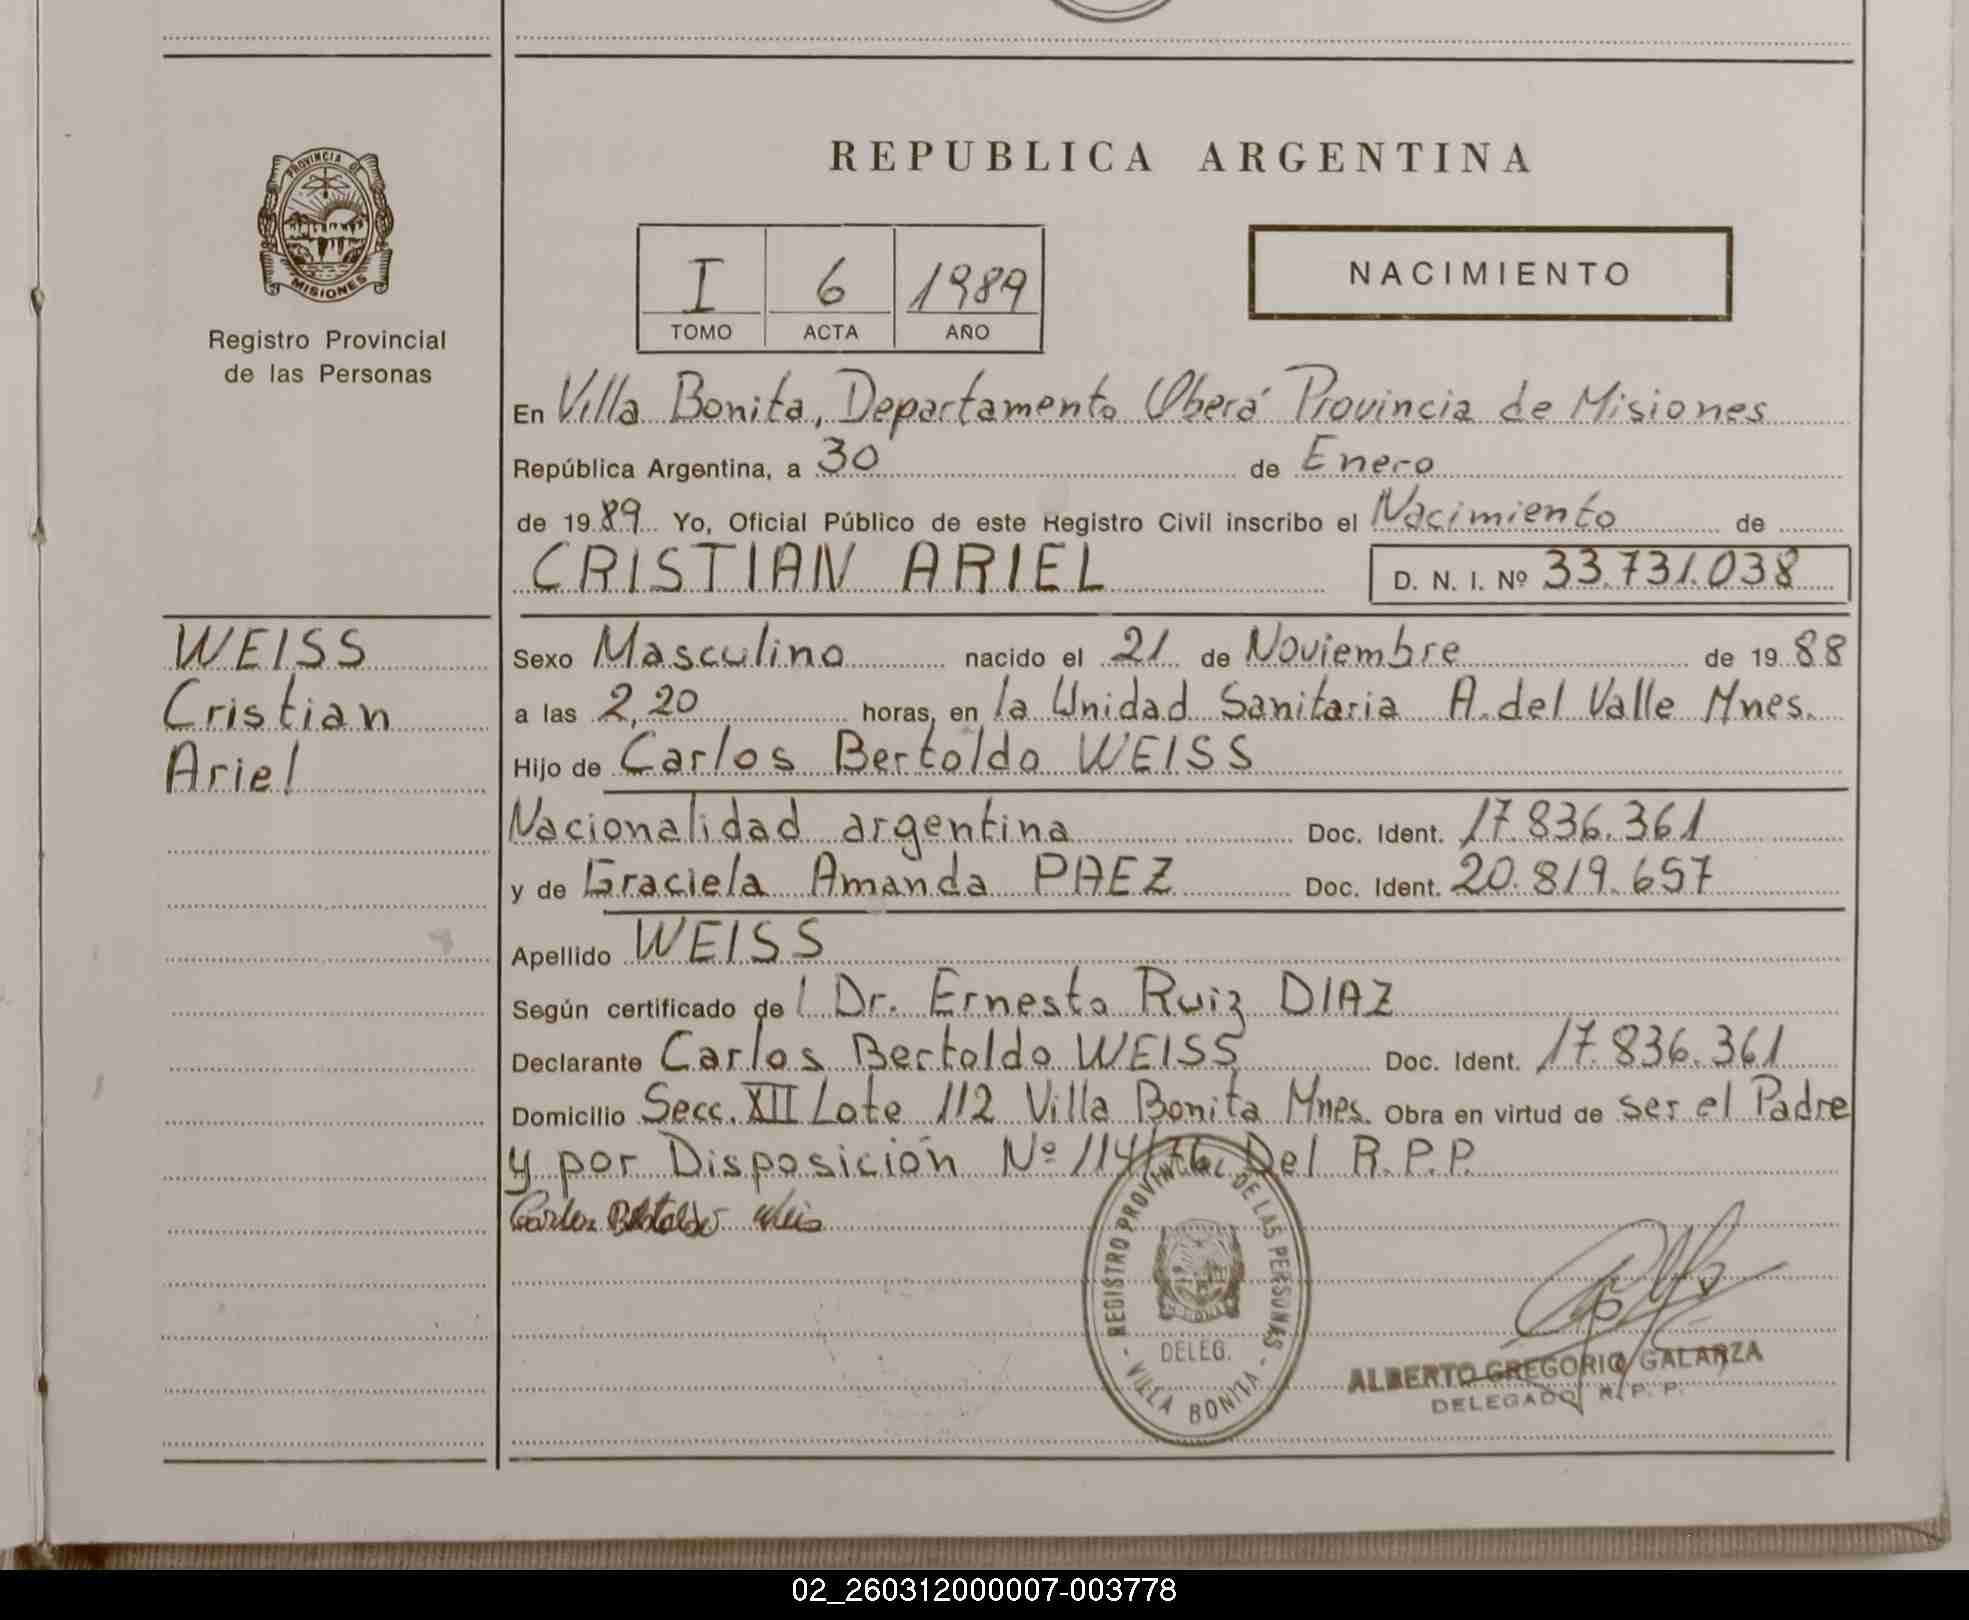 PROVINCIA DE
MISIONES
Registro Provincial
de las Personas
REPUBLICA ARGENTINA
I 6 1989
TOMO ACTA AÑO
NACIMIENTO
En Villa Bonita, Departamento Oberá Provincia de Misiones
República Argentina, a 30 de Enero
de 1989 Yo, Oficial Público de este Registro Civil inscribo el Nacimiento de
CRISTIAN ARIEL D. N. I. Nº 33.731.038
WEISS
Cristian
Ariel
Sexo Masculino nacido el 21 de Noviembre de 1988
a las 2,20 horas, en la Unidad Sanitaria A. del Valle Mnes.
Hijo de Carlos Bertoldo WEISS
Nacionalidad argentina Doc. Ident. 17.836.361
y de Graciela Amanda PAEZ Doc. Ident. 20.819.657
Apellido WEISS
Según certificado de l Dr. Ernesto Ruiz DIAZ
Declarante Carlos Bertoldo WEISS Doc. Ident. 17.836.361
Domicilio Secc. XII Lote 112 Villa Bonita Mnes. Obra en virtud de ser el Padre
y por Disposición Nº 114/76 Del R.P.P.
Carlos Bertoldo Weis
REGISTRO PROVINCIAL DE LAS PERSONAS
DELEG.
- VILLA BONITA -
ALBERTO GREGORIO GALARZA
DELEGADO R. P. P.
02_260312000007-003778